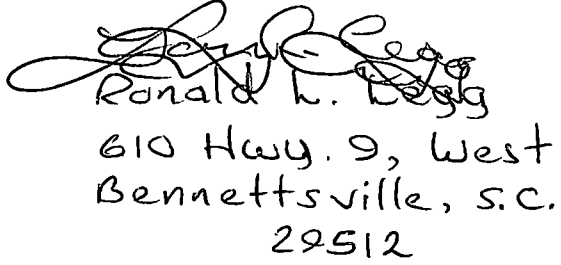 Ronald L. Legg
610 Hwy. 9, West
Bennettsville, S.C.
29512